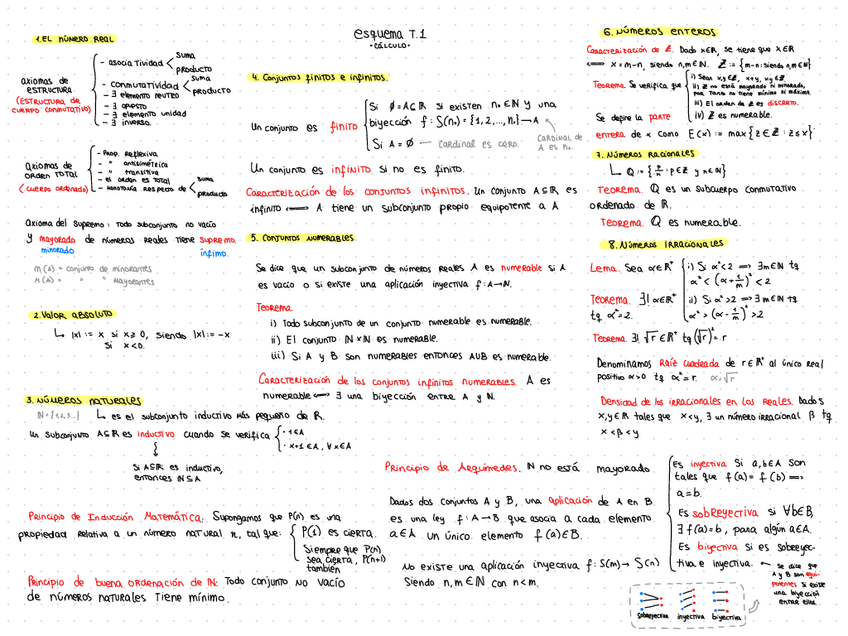 esquema T.1
·CÁLCULO·
1. EL NÚMERO REAL
axiomas de ESTRUCTURA (ESTRUCTURA DE CUERPO CONMUTATIVO)
- asociatividad suma producto
- conmutatividad suma producto
- ∃ elemento neutro
- ∃ opuesto
- ∃ elemento unidad
- ∃ inverso.
axiomas de ORDEN TOTAL (CUERPO ORDENADO)
- Prop. Reflexiva
- " antisimétrica
- " transitiva
- el orden es total
- monotonía respecto de suma producto
Axioma del supremo: Todo subconjunto no vacío
y mayorado de números reales tiene supremo.
minorado ínfimo.
m(A) = conjunto de minorantes
M(A) = " " mayorantes
2. VALOR ABSOLUTO
↳ |x| := x si x≥0, siendo |x| := -x
si x<0.
3. NÚMEROS NATURALES
ℕ={1,2,3...} ↳ es el subconjunto inductivo más pequeño de ℝ.
Un subconjunto A⊆ℝ es inductivo cuando se verifica
· 1∈A
· x+1∈A, ∀x∈A
Si A⊆ℝ es inductivo,
entonces ℕ⊆A
Principio de Inducción Matemática: Supongamos que P(n) es una
propiedad relativa a un número natural n, tal que:
P(1) es cierta.
Siempre que P(n)
sea cierta, P(n+1)
también
Principio de buena ordenación de ℕ: Todo conjunto no vacío
de números naturales tiene mínimo.
4. Conjuntos finitos e infinitos.
Un conjunto es finito
Si ∅≠A⊆ℝ si existen n₀∈ℕ y una
biyección f: S(n₀)={1,2,...,n₀}→A
Si A=∅ ← cardinal es cero.
CARDINAL de
A es n₀.
Un conjunto es infinito si no es finito.
Caracterización de los conjuntos infinitos. Un conjunto A⊆ℝ es
infinito ⟺ A tiene un subconjunto propio equipotente a A
5. CONJUNTOS NUMERABLES
Se dice que un subconjunto de números reales A es numerable si A
es vacío o si existe una aplicación inyectiva f: A→ℕ.
Teorema.
i) Todo subconjunto de un conjunto numerable es numerable.
ii) El conjunto ℕ×ℕ es numerable.
iii) Si A y B son numerables entonces A∪B es numerable.
Caracterización de los conjuntos infinitos numerables. A es
numerable ⟺ ∃ una biyección entre A y ℕ.
Principio de Arquímedes. ℕ no está mayorado
Dados dos conjuntos A y B, una aplicación de A en B
es una ley f: A→B que asocia a cada elemento
a∈A un único elemento f(a)∈B.
No existe una aplicación inyectiva f: S(m)→S(n)
Siendo n,m∈ℕ con n<m.
6. NÚMEROS ENTEROS
Caracterización de ℤ. Dado x∈ℝ, se tiene que x∈ℝ
⟺ x=m-n, siendo n,m∈ℕ. ℤ:={m-n: siendo n,m∈ℕ}
Teorema. Se verifica que
i) Sean x,y∈ℤ, x+y, xy∈ℤ
ii) ℤ no está mayorado ni minorado,
por tanto no tiene mínimo ni máximo
iii) El orden de ℤ es discreto.
iv) ℤ es numerable.
Se define la parte
entera de x como E(x):= max{z∈ℤ: z≤x}
7. NÚMEROS RACIONALES
↳ ℚ:={p/n : p∈ℤ y n∈ℕ}
Teorema. ℚ es un subcuerpo conmutativo
ordenado de ℝ.
Teorema. ℚ es numerable.
8. NÚMEROS IRRACIONALES
Lema. Sea α∈ℝ⁺
i) Si α²<2 ⟹ ∃m∈ℕ tq
α²<(α+1/m)²<2
ii) Si α²>2 ⟹ ∃m∈ℕ tq
α²>(α-1/m)²>2
Teorema. ∃! α∈ℝ⁺
tq α²=2.
Teorema. ∃! √r∈ℝ⁺ tq (√r)²=r
Denominamos Raíz cuadrada de r∈ℝ⁺ al único real
positivo α>0 tq α²=r. α=√r
Densidad de los irracionales en los Reales. Dados
x,y∈ℝ tales que x<y, ∃ un número irracional β tq
x<β<y
Es inyectiva si a,b∈A son
tales que f(a)=f(b) ⟹
a=b.
Es sobreyectiva si ∀b∈B,
∃ f(a)=b, para algún a∈A.
Es biyectiva si es sobreyec-
tiva e inyectiva.
← se dice que
A y B son equi-
potentes si existe
una biyección
entre ellos.
sobreyectiva inyectiva biyectiva